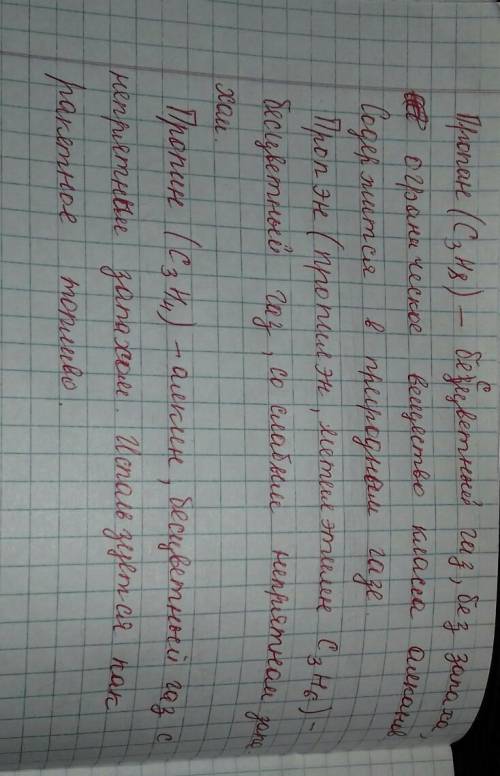 Пропан (C3H8) – бесцветный газ, без запаха,
огранический вещество класса алканы
Содержится в природном газе.
Пропэн (пропилэн, метилэтилен C3H6) –
бесцветный газ, со слабым неприятнам запа
хом.
Пропин (C3H4) – алкин, бесцветный газ с
неприятным запахом. Используется как
ракетное торливо.